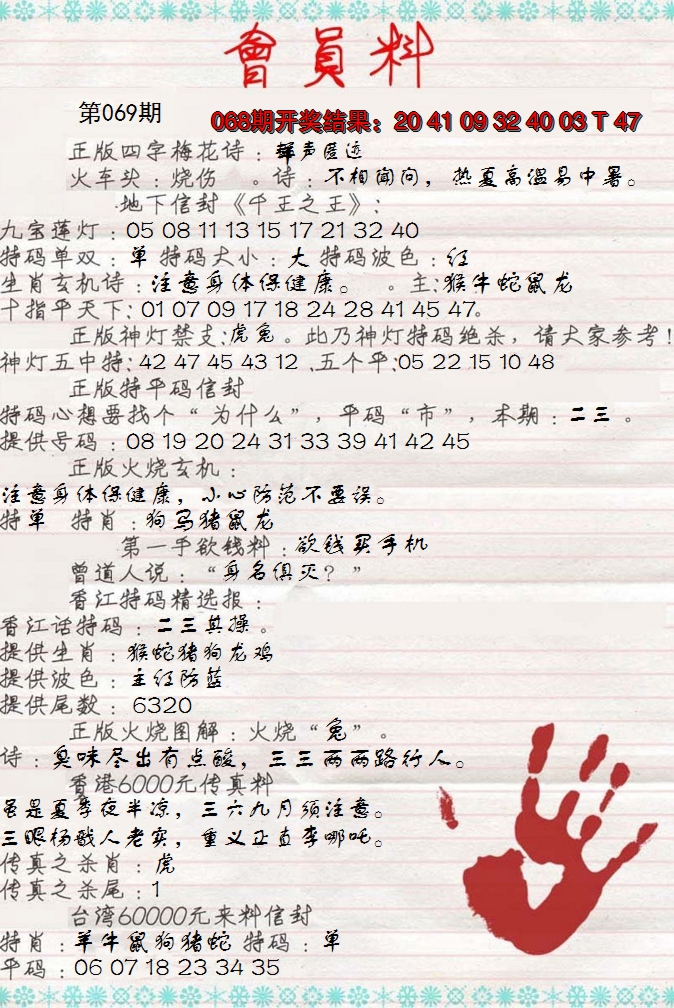 會員料
第069期
068期开奖结果：20 41 09 32 40 03 T 47
正版四字梅花诗：蝉声匿迹
火车头：烧伤 。诗：不相闻问，热夏高温易中暑。
地下信封《千王之王》：
九宝莲灯：05 08 11 13 15 17 21 32 40
特码单双：单 特码大小：大 特码波色：红
生肖玄机诗：注意身体保健康。 。主：猴牛蛇鼠龙
十指平天下：01 07 09 17 18 24 28 41 45 47。
正版神灯禁支：虎兔。此乃神灯特码绝杀，请大家参考！
神灯五中特：42 47 45 43 12 、五个平：05 22 15 10 48
正版特平码信封
特码心想要找个“为什么”，平码“市”，本期：二三 。
提供号码：08 19 20 24 31 33 39 41 42 45
正版火烧玄机：
注意身体保健康，小心防范不要误。
特单 特肖：狗马猪鼠龙
第一手欲钱料：欲钱买手机
曾道人说：“身名俱灭？”
香江特码精选报：
香江话特码：二三其操。
提供生肖：猴蛇猪狗龙鸡
提供波色：主红防蓝
提供尾数：6320
正版火烧图解：火烧“兔”。
诗：臭味尽出有点酸，三三两两路行人。
香港6000元传真料
虽是夏季夜半凉，三六九月须注意。
三眼杨戬人老实，重义正直李哪吒。
传真之杀肖：虎
传真之杀尾：1
台湾60000元来料信封
特肖：羊牛鼠狗猪蛇 特码：单
平码：06 07 18 23 34 35